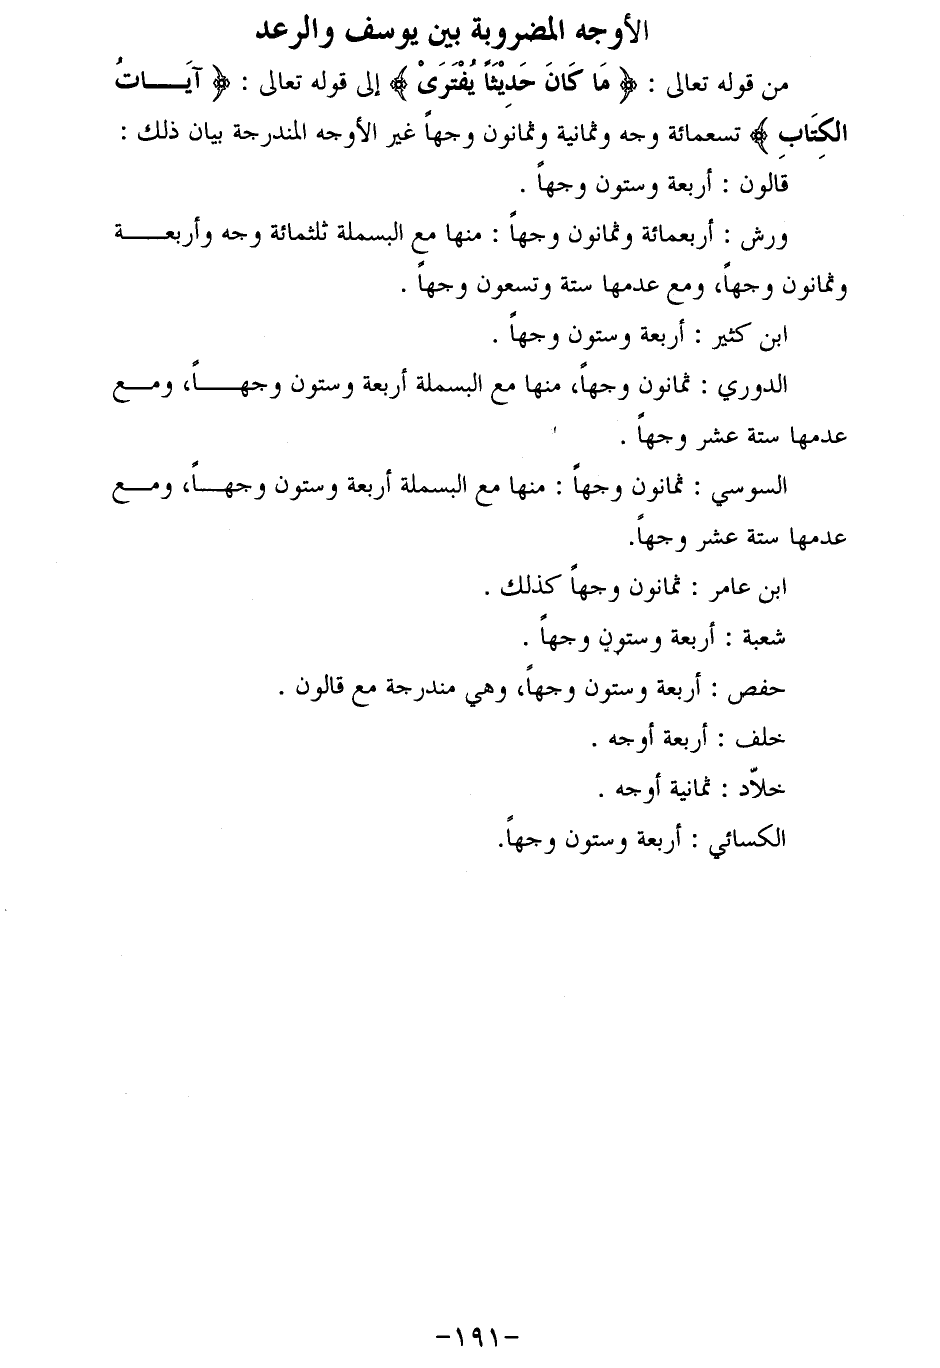 الأوجه المضروبة بين يوسف والرعد
من قوله تعالى : ﴿ مَا كَانَ حَدِيْثَاً يُفْتَرَىْ ﴾ إلى قوله تعالى : ﴿ آيَـــاتُ
الكِتَابِ ﴾ تسعمائة وجه وثمانية وثمانون وجهاً غير الأوجه المندرجة بيان ذلك :
قالون : أربعة وستون وجهاً .
ورش : أربعمائة وثمانون وجهاً : منها مع البسملة ثلثمائة وجه وأربعـــة
وثمانون وجهاً، ومع عدمها ستة وتسعون وجهاً .
ابن كثير : أربعة وستون وجهاً .
الدوري : ثمانون وجهاً، منها مع البسملة أربعة وستون وجهـــاً، ومـع
عدمها ستة عشر وجهاً .
السوسي : ثمانون وجهاً : منها مع البسملة أربعة وستون وجهــاً، ومـع
عدمها ستة عشر وجهاً.
ابن عامر : ثمانون وجهاً كذلك .
شعبة : أربعة وستون وجهاً .
حفص : أربعة وستون وجهاً، وهي مندرجة مع قالون .
خلف : أربعة أوجه .
خلاّد : ثمانية أوجه .
الكسائي : أربعة وستون وجهاً.
-١٩١-